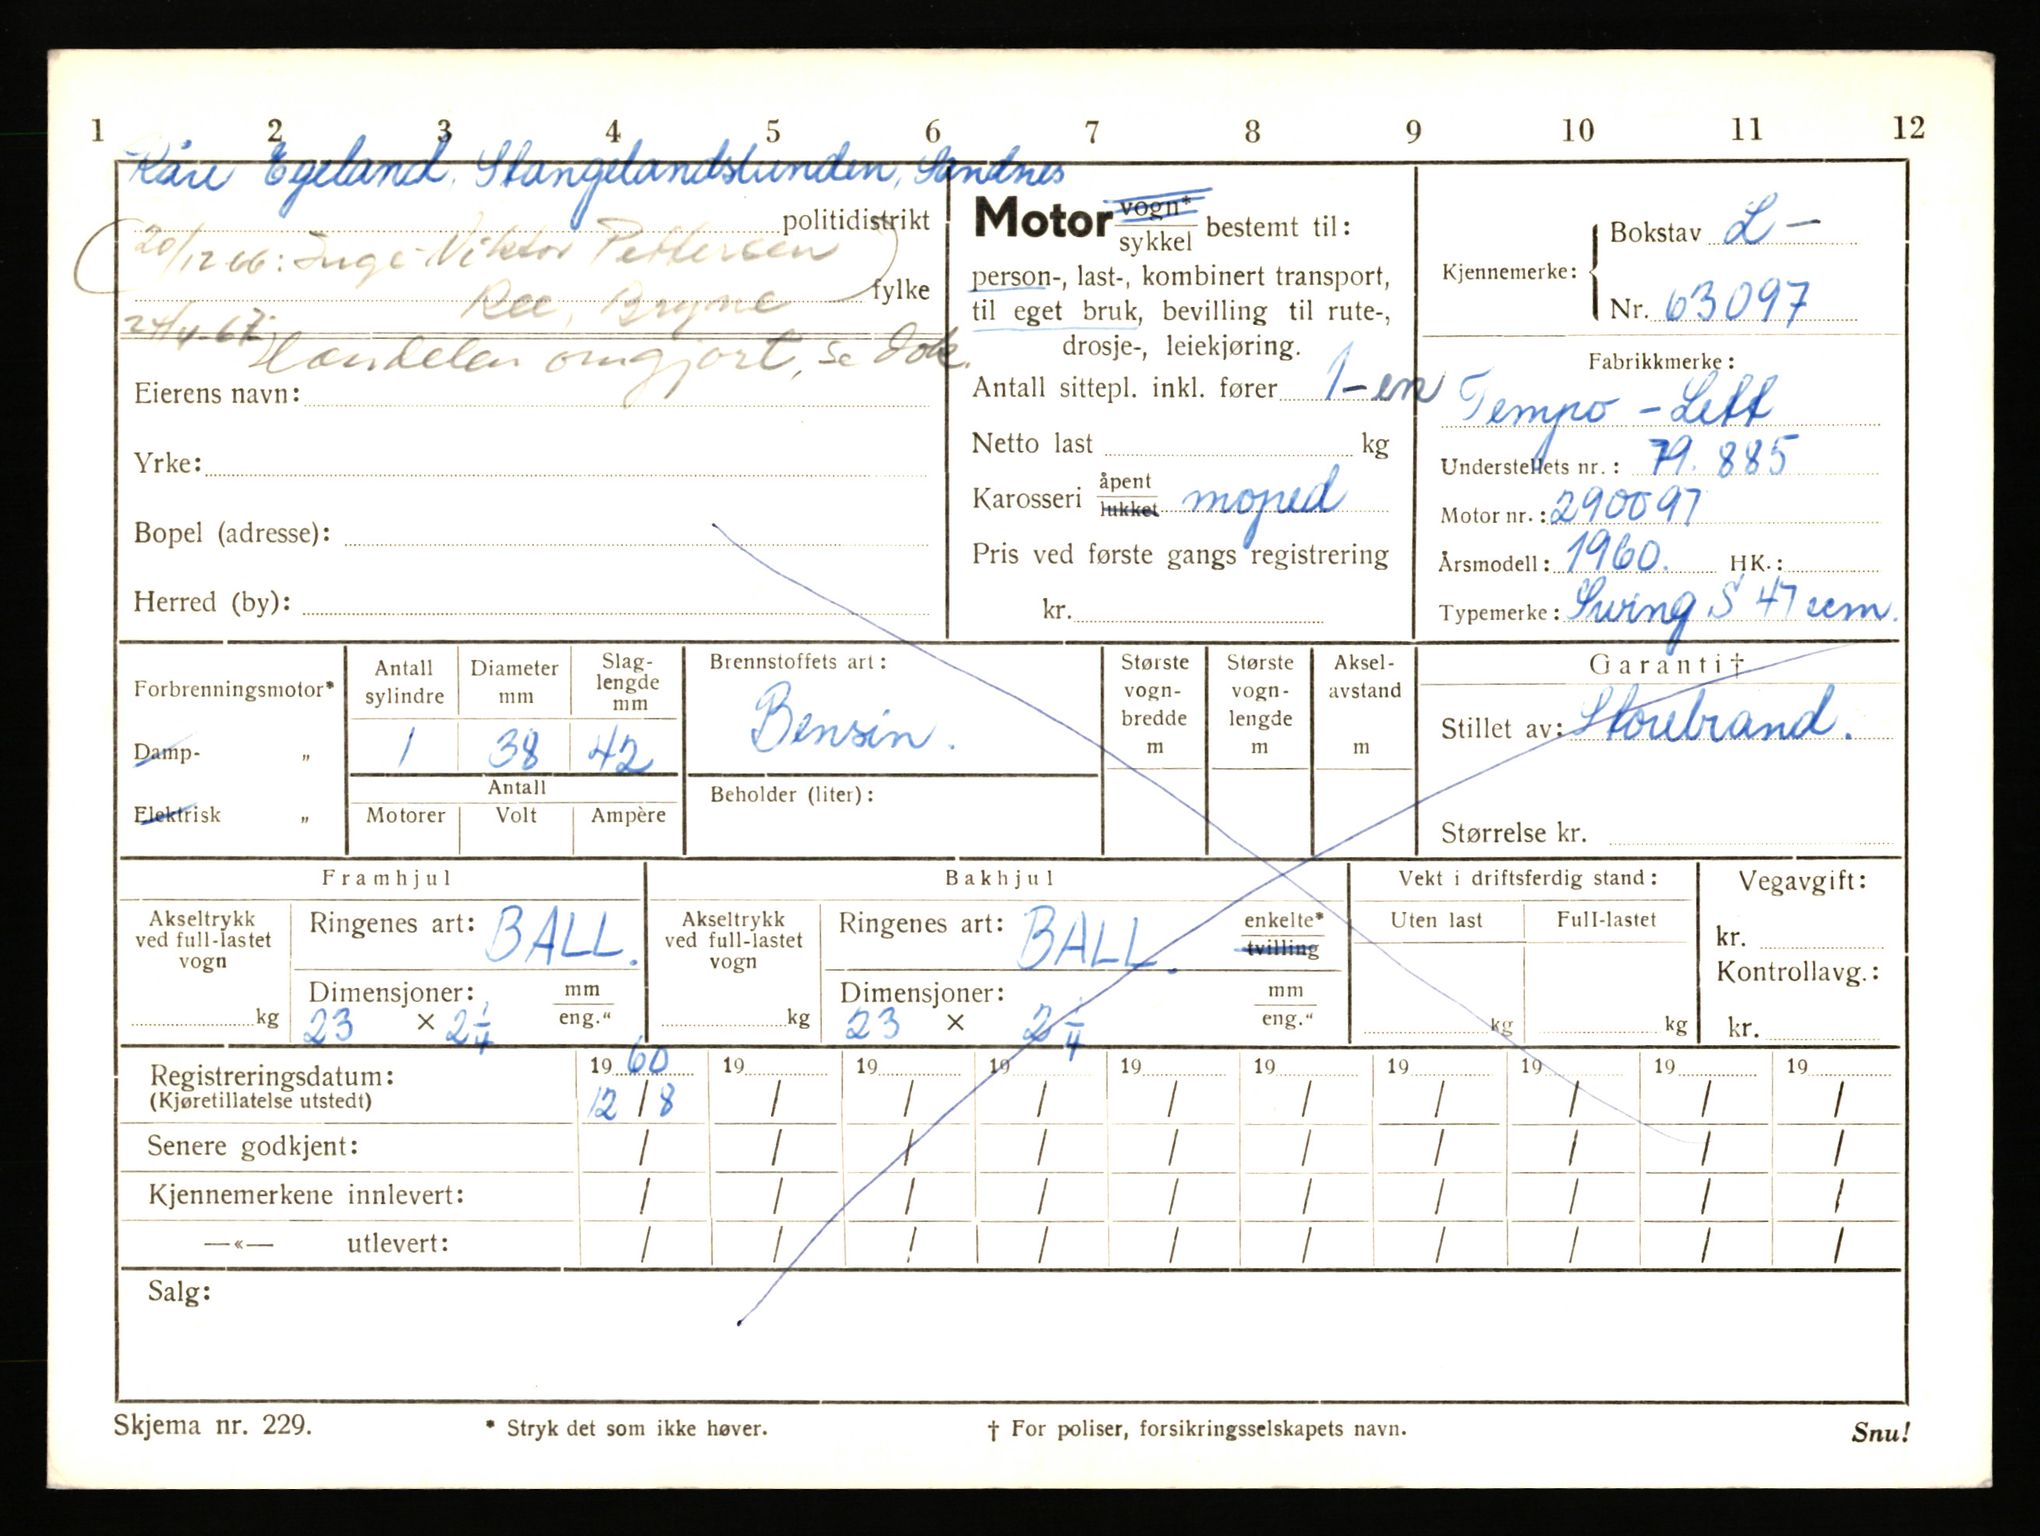 1 2 3 4 5 6 7 8 9 10 11 12
Kåre Egeland, Stangelandslunden, Sandnes
politidistrikt
20/12 66: Inge-Viktor Pettersen
fylke
Ree, Bryne
24/4-67: Handelen omgjort, se dok.
Eierens navn:
Yrke:
Bopel (adresse):
Herred (by):
Motor vogn* sykkel bestemt til:
person-, last-, kombinert transport,
til eget bruk, bevilling til rute-,
drosje-, leiekjøring.
Antall sittepl. inkl. fører 1-en
Netto last kg
Karosseri åpent lukket moped
Pris ved første gangs registrering
kr.
Kjennemerke: Bokstav L -
Nr. 63097
Fabrikkmerke:
Tempo - Lett
Understellets nr.: 79.885
Motor nr.: 290097
Årsmodell: 1960. HK.:
Typemerke: Swing S 47 ccm.
Forbrenningsmotor*
Damp- „
Elektrisk „
Antall sylindre
1
Diameter mm
38
Slag-lengde mm
42
Antall
Motorer Volt Ampère
Brennstoffets art:
Bensin.
Beholder (liter):
Største vogn-bredde m
Største vogn-lengde m
Aksel-avstand m
Garanti†
Stillet av: Storebrand.
Størrelse kr.
Framhjul
Akseltrykk ved full-lastet vogn
kg
Ringenes art: BALL.
Dimensjoner: mm eng."
23 × 2 1/4
Bakhjul
Akseltrykk ved full-lastet vogn
kg
Ringenes art: BALL. enkelte* tvilling
Dimensjoner: mm eng."
23 × 2 1/4
Vekt i driftsferdig stand:
Uten last Full-lastet
kg kg
Vegavgift:
kr.
Kontrollavg.:
kr.
Registreringsdatum: 1960 19 19 19 19 19 19 19 19 19
(Kjøretillatelse utstedt) 12/8 / / / / / / / / /
Senere godkjent: / / / / / / / / / /
Kjennemerkene innlevert: / / / / / / / / / /
—«— utlevert: / / / / / / / / / /
Salg:
Skjema nr. 229. * Stryk det som ikke høver. † For poliser, forsikringsselskapets navn. Snu!